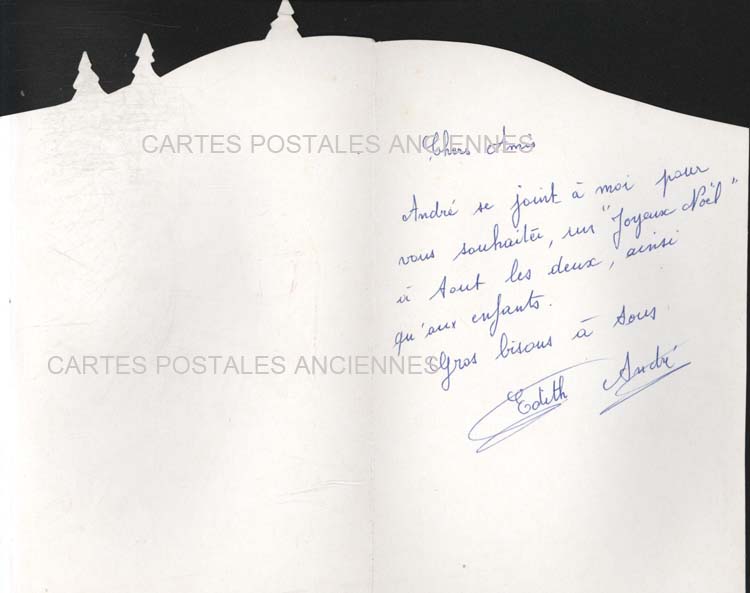 CARTES POSTALES ANCIENNES
Chers Amis
André se joint à moi pour
vous souhaitée, un "Joyeux Noël"
à tout les deux, ainsi
qu'aux enfants.
Gros bisous à tous.
CARTES POSTALES ANCIENNES
Edith André